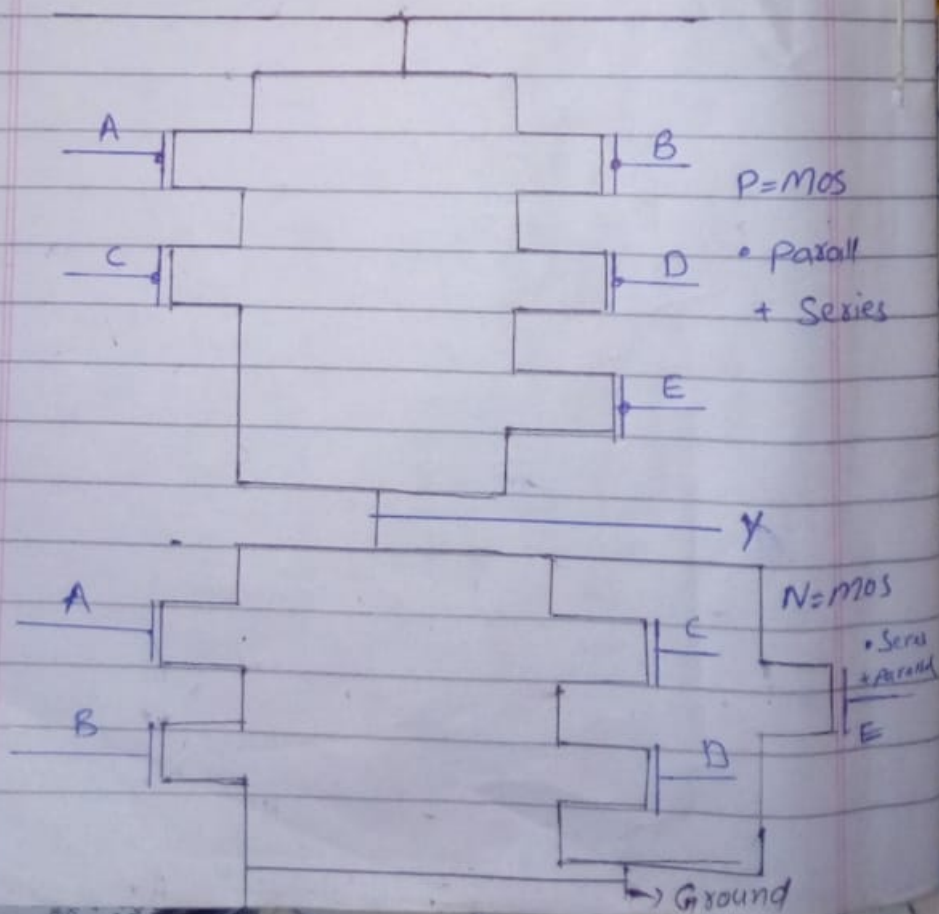 A
B
P=MOS
C
D
• Parall
+ Series
E
Y
A
N=MOS
C
• Seres
+ Parallel
E
B
D
→ Ground